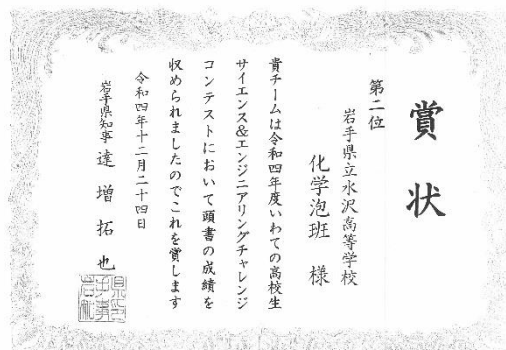 賞状
第二位
岩手県立水沢高等学校
化学泡班 様
貴チームは令和四年度いわての高校生
サイエンス&エンジニアリングチャレンジ
コンテストにおいて頭書の成績を
収められましたのでこれを賞します
令和四年十二月二十四日
岩手県知事 達増拓也